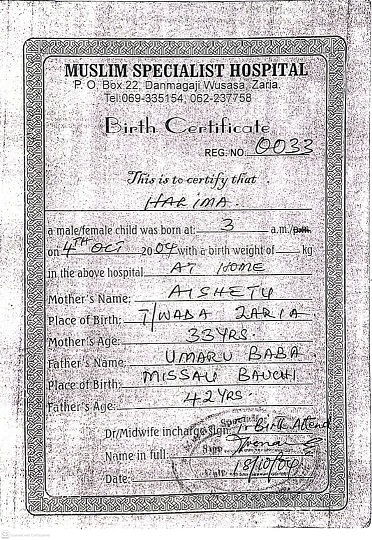 MUSLIM SPECIALIST HOSPITAL
P. O. Box 22, Danmagaji Wusasa, Zaria.
Tel:069-335154, 062-237758
Birth Certificate
REG. NO. 0033
This is to certify that
HARIMA.
a male/female child was born at: 3 a.m./p.m.
on 4TH OCT 2004 with a birth weight of kg
in the above hospital AT HOME
Mother's Name: AISHETU
Place of Birth: T/WADA ZARIA
Mother's Age: 33YRS.
Father's Name: UMARU BABA
Place of Birth: MISSAU BAUCHI
Father's Age: 42YRS.
Dr/Midwife incharge sign: Tr Birth Attend
Name in full:
Date: 18/10/04